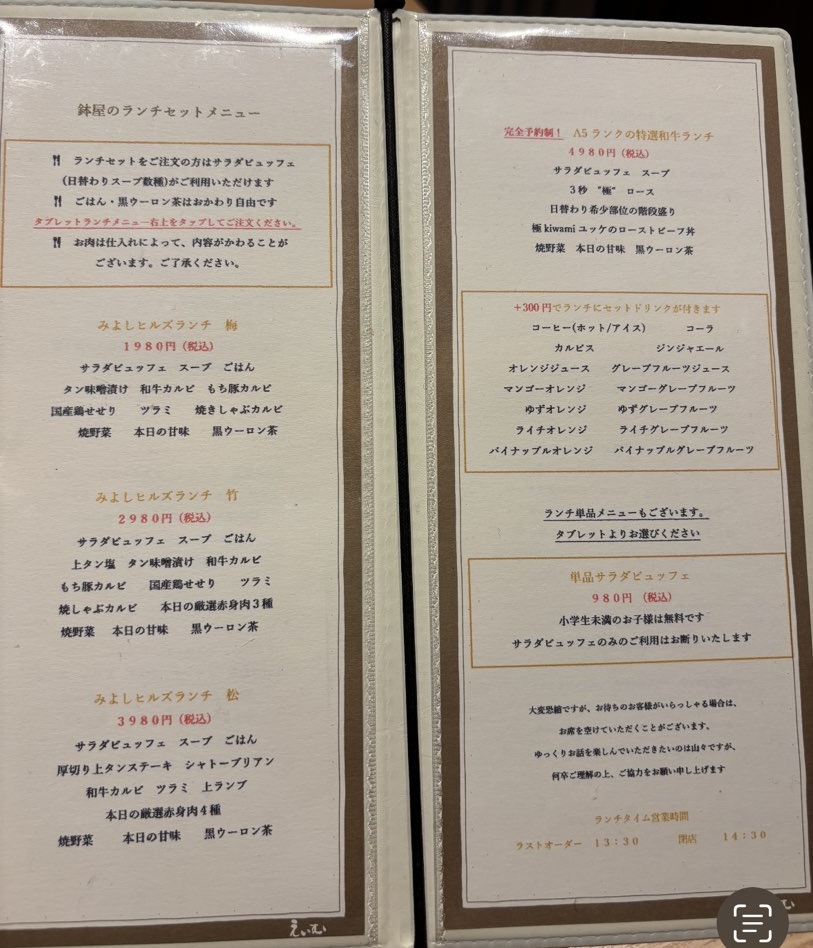 鉢屋のランチセットメニュー
ランチセットをご注文の方はサラダビュッフェ
(日替わりスープ数種)がご利用いただけます
ごはん・黒ウーロン茶はおかわり自由です
タブレットランチメニュー右上をタップしてご注文ください。
お肉は仕入れによって、内容がかわることが
ございます。ご了承ください。
みよしヒルズランチ 梅
1980円（税込）
サラダビュッフェ スープ ごはん
タン味噌漬け 和牛カルビ もち豚カルビ
国産鶏せせり ツラミ 焼きしゃぶカルビ
焼野菜 本日の甘味 黒ウーロン茶
みよしヒルズランチ 竹
2980円（税込）
サラダビュッフェ スープ ごはん
上タン塩 タン味噌漬け 和牛カルビ
もち豚カルビ 国産鶏せせり ツラミ
焼しゃぶカルビ 本日の厳選赤身肉3種
焼野菜 本日の甘味 黒ウーロン茶
みよしヒルズランチ 松
3980円（税込）
サラダビュッフェ スープ ごはん
厚切り上タンステーキ シャトーブリアン
和牛カルビ ツラミ 上ランプ
本日の厳選赤身肉4種
焼野菜 本日の甘味 黒ウーロン茶
えいむ
完全予約制！ A5ランクの特選和牛ランチ
4980円（税込）
サラダビュッフェ スープ
3秒 "極" ロース
日替わり希少部位の階段盛り
極kiwamiユッケのローストビーフ丼
焼野菜 本日の甘味 黒ウーロン茶
+300円でランチにセットドリンクが付きます
コーヒー(ホット/アイス) コーラ
カルピス ジンジャエール
オレンジジュース グレープフルーツジュース
マンゴーオレンジ マンゴーグレープフルーツ
ゆずオレンジ ゆずグレープフルーツ
ライチオレンジ ライチグレープフルーツ
パイナップルオレンジ パイナップルグレープフルーツ
ランチ単品メニューもございます。
タブレットよりお選びください
単品サラダビュッフェ
980円 （税込）
小学生未満のお子様は無料です
サラダビュッフェのみのご利用はお断りいたします
大変恐縮ですが、お待ちのお客様がいらっしゃる場合は、
お席を空けていただくことがございます、
ゆっくりお話を楽しんでいただきたいのは山々ですが、
何卒ご理解の上、ご協力をお願い申し上げます
ランチタイム営業時間
ラストオーダー 13:30 閉店 14:30
む